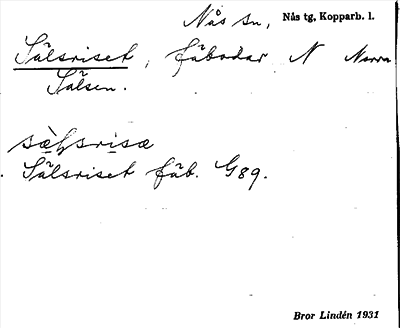 Nås sn, Nås tg, Kopparb. l.
Sälsriset, fäbodar N Norra
Sälsen.
sæ̀ḷsrisæ
Sälsriset fäb. G89.
Bror Lindén 1931